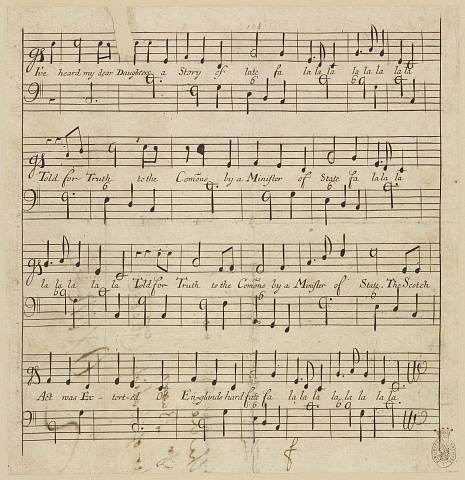 I've heard my dear Daughters a Story of late fa la la la la la la la
Told for Truth to the Comōns by a Minister of State fa la la la
la la la la la Told for Truth to the Comōns by a Minister of State. The Scotch
Act was Ex-tort-ed Of Englands hard fate fa la la la la la la la.